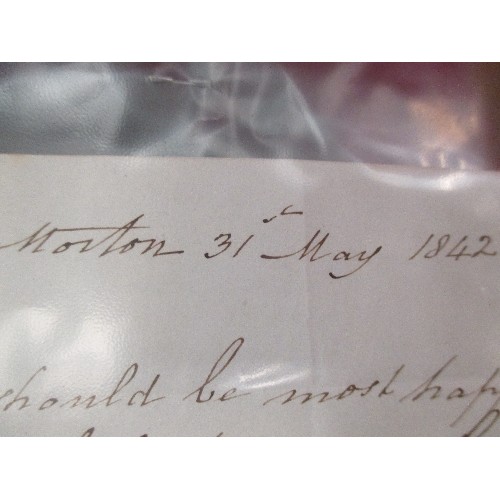 Morton 31st May 1842
should be most happ